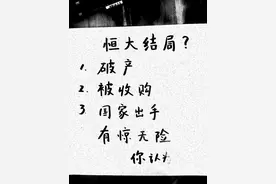 恒大结局?
1. 破产
2. 被收购
3. 国家出手
有惊无险
你认